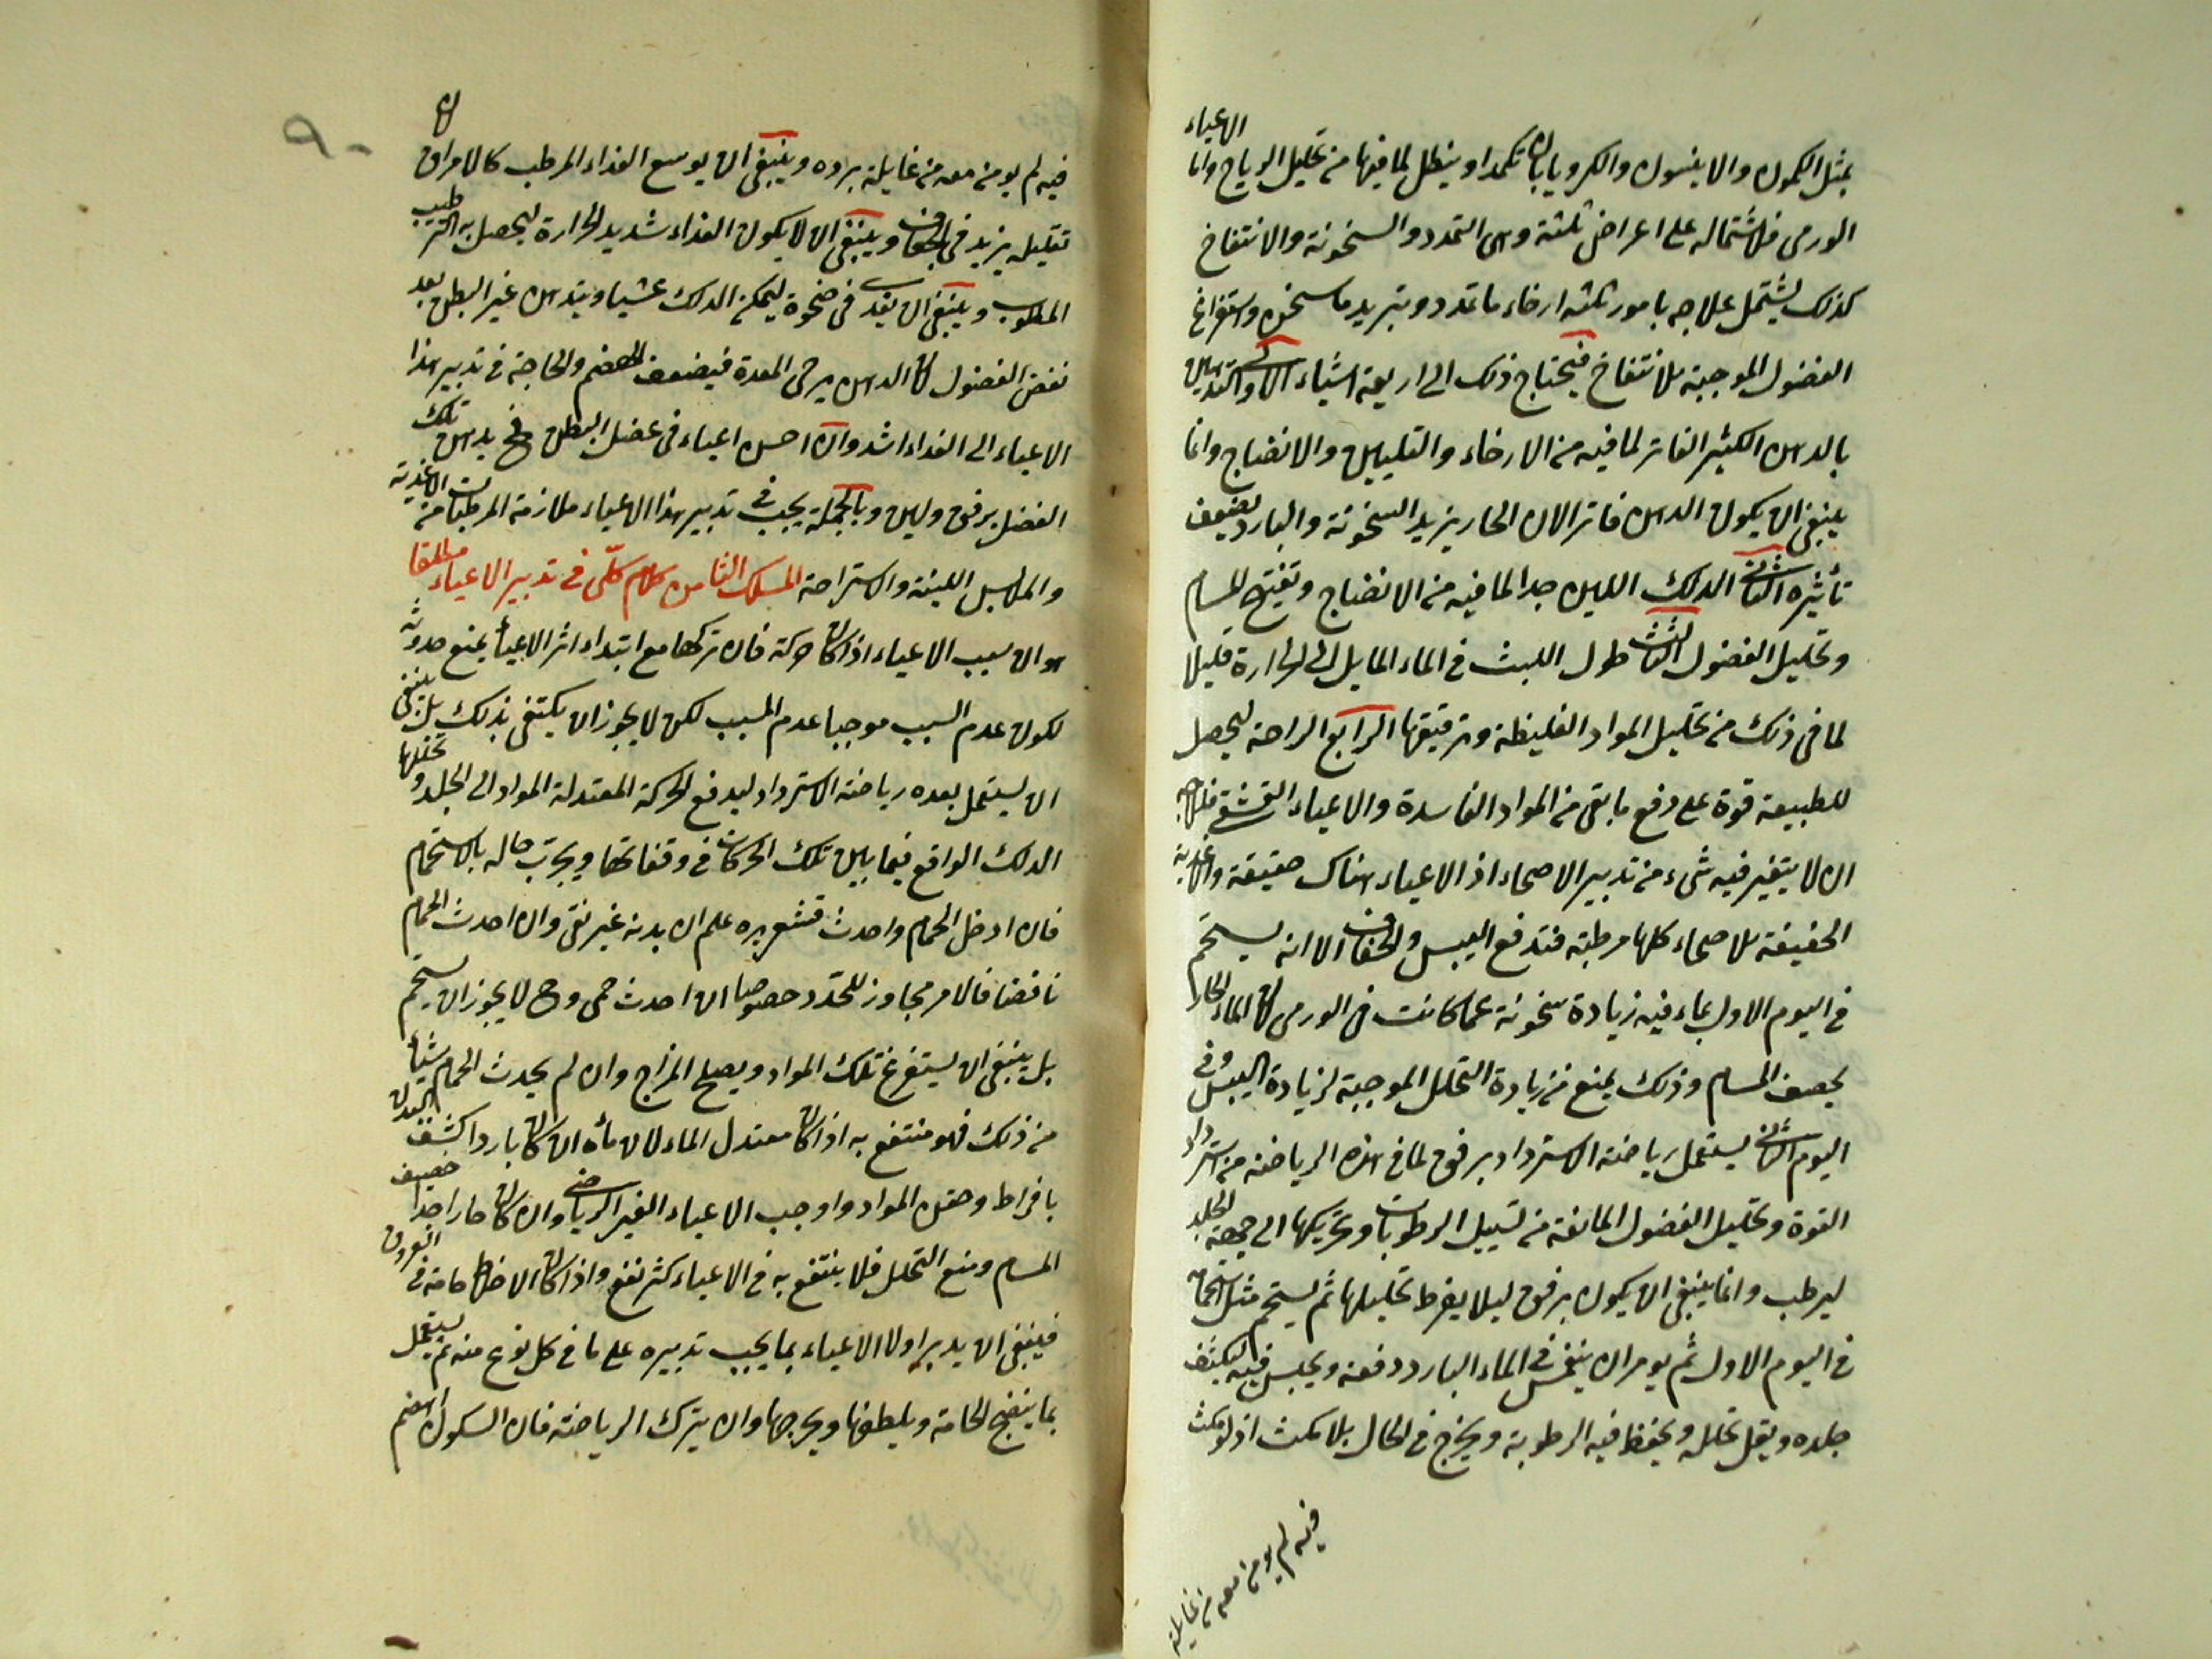 بمثل الكمون والانيسون والكرويا بان تكمد او ينطل لما فيها من تحليل الرياح واما الاعياء
الورمى فلاشتماله على اعراض ثلثة وهى التمدد والسخونة والانتفاخ
كذلك يشتمل علاجه بامور ثلثه ارخاء ما تمدد وتبريد ما سخن واستفراغ
الفضول الموجبة للانتفاخ فيحتاج ذلك الى اربعة اشياء الاول التدهين
بالدهن الكثير الفاتر لما فيه من الارخاء والتليين والانضاج وانما
ينبغى ان يكون الدهن فاترا لان الحار يزيد السخونة والبارد يضعف
تأثيره الثانى الدلك اللين جدا لما فيه من الانضاج وتفتيح المسام
وتحليل الفضول الثالث طول اللبث فى الماء المايل الى الحرارة قليلا
لما فى ذلك من تحليل المواد الغليظة وترقيقها الرابع الراحة ليحصل
للطبيعة قوة على دفع ما بقى من المواد الفاسدة والاعياء القشفى فعلاجه
ان لا يتغير فيه شىء من تدبير الاصحاء اذ الاعياء هناك حقيقة والاغذية
الخفيفة للاصحاء كلها مرطبة فتدفع اليبس والجفاف الا انه يستحم
فى اليوم الاول بماء فيه زيادة سخونة عما كانت فى الورمى لان الماء الحار
يحصف المسام وذلك يمنع من زيادة التحلل الموجبة لزيادة اليبس وفى
اليوم الثانى يستعمل رياضة الاسترداد برفق لما فى هذه الرياضة من استرداد
القوة وتحليل الفضول المانعة من تسييل الرطوبات وتحريكها الى جهة الجلد
ليرطب وانما ينبغى ان يكون برفق ليلا يفرط تحليلها ثم يستحم مثل استحمامه
فى اليوم الاول ثم يومر ان ينغمس فى الماء البارد دفعة ويحبس فيه ليكثف
جلده ويقل تحلله ويحفظ فيه الرطوبة ويخرج فى الحال بلا مكث اذ لو مكث
فيه لم يومن معه من غايلة
٩٠
فيه لم يومن معه من غايلة برده وينبغى ان يوسع الغذاء المرطب كالامراق لان
تقليله يزيد فى الجفاف وينبغى ان لا يكون الغذاء شديد الحرارة ليحصل به الترطيب
المطلوب وينبغى ان يغذى فى ضحوة ليمكن الدلك عشيا ويتدهن غير البطن بعد
نفض الفضول لان الدهن يرخى المعدة فيضعف الهضم والحاجة فى تدبير هذا
الاعياء الى الغذاء اشد وان احس اعياء فى عضل البطن فح يدهن تلك
العضل برفق ولين وبالجملة يجب فى تدبير هذا الاعياء ملازمة المرطبات من الاغذية
والملابس اللينة والاستراحة المسلك الثامن كلام كلّى فى تدبير الاعياء مطلقا
هو ان سبب الاعياء اذا كان حركة فان تركها مع ابتداء اثر الاعياء يمنع حدوثه
لكون عدم السبب موجبا عدم المسبب لكن لا يجوز ان يكتفى بذلك بل ينبغى
ان يستعمل بعده رياضة الاسترداد ليدفع الحركة المعتدلة المواد الى الجلد وتحللها
الدلك الواقع فيما بين تلك الحركات فى وقفاتها ويجرّب حاله بالاستحمام
فان ادخل الحمام واحدث قشعريره علم ان بدنه غير نقى وان احدث الحمام
نافضا فالامر مجاوز للحدّ خصوصا ان احدث حمى وح لا يجوز ان يستحم
بل ينبغى ان يستفرغ تلك المواد ويصلح المزاج وان لم يحدث الحمام شيأ
من ذلك فهو منتفع به اذا كان معتدل الماء لان مأه ان كان باردا كثف البدن
بافراط وحقن المواد واوجب الاعياء الغير الرياضى وان كان حارا جدا حصف
المسام ومنع التحلل فلا ينتفع به فى الاعياء كثير نفع واذا كان الاخلاط خامة فى العروق
فينبغى ان يدبر اولا الاعياء بما يجب تدبيره على ما فى كل نوع منه ثم يستعمل
بما ينضج الخامة ويلطفها ويخرجها وان يترك الرياضة فان السكون اهضم